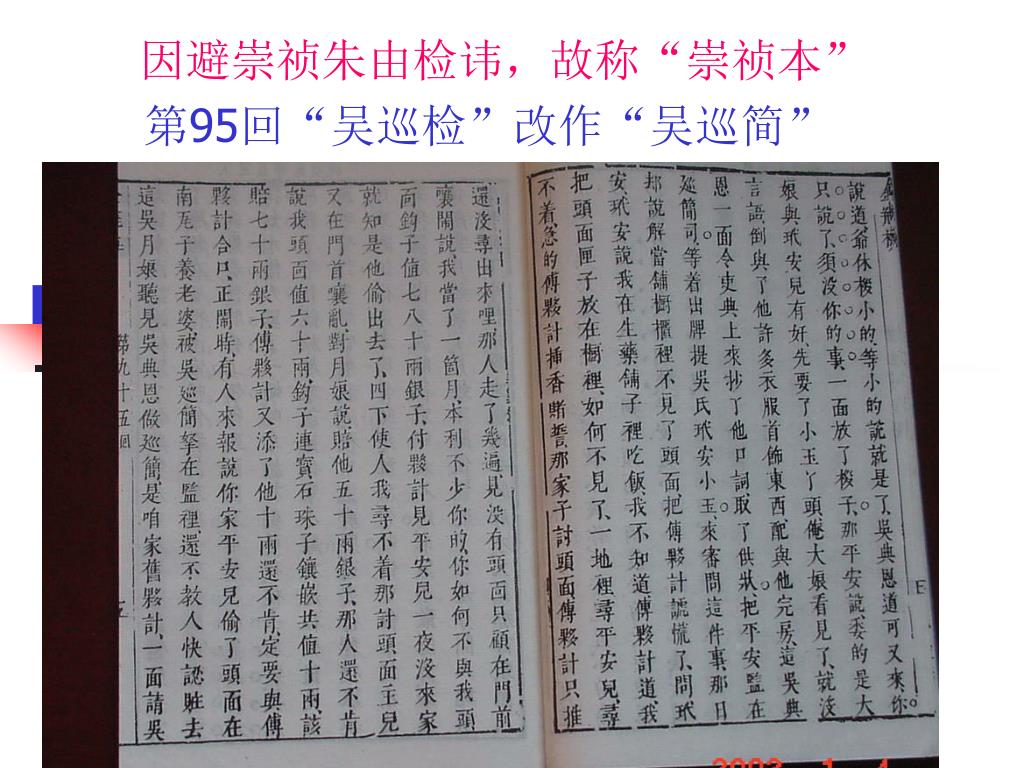 因避崇祯朱由检讳，故称“崇祯本”
第95回“吴巡检”改作“吴巡简”
說道爺休棱小的等小的說就是了吳典恩道可又來你
只說了須沒你的事一面放了棱子那平安說委的是大
娘與玳安兒有奸先要了小玉丫頭俺大娘看見了就沒
言語倒與了他許多衣服首飾東西配與他完房這吳典
恩一面令吏典上來抄了他口詞取了供狀把平安監在
巡簡司等着出牌提吳氏玳安小玉來審問這件事那日
却說解當舖櫥櫃裡不見了頭面把傅夥計諕慌了問玳
安玳安說我在生藥舖子裡吃飯我不知道傅夥計道我
把頭面匣子放在櫥裡如何不見了一地裡尋平安兒尋
不着急的傅夥計插香賭誓那家子討頭面傅夥計只推
還沒尋出來哩那人走了幾遍見沒有頭面只顧在門前
嚷鬧說我當了一箇月本利不少你的你如何不與我頭
面鈎子值七八十兩銀子付夥計見平安兒一夜沒來家
就知是他偷出去了四下使人找尋不着那討頭面主兒
又在門首嚷亂對月娘說賠他五十兩銀子那人還不肯
說我頭面值六十兩鈎子連寶石珠子鑲嵌共值十兩該
賠七十兩銀子傅夥計又添了他十兩還不肯定要與傅
夥計合口正鬧時有人來報說你家平安兒偷了頭面在
南瓦子養老婆被吳巡簡拏在監裡還不教人快認賍去
這吳月娘聽見吳典恩做巡簡是咱家舊夥計一面請吳
第九十五回